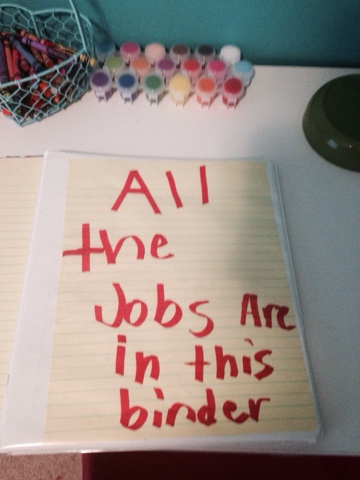 All
the
Jobs Are
in this
binder